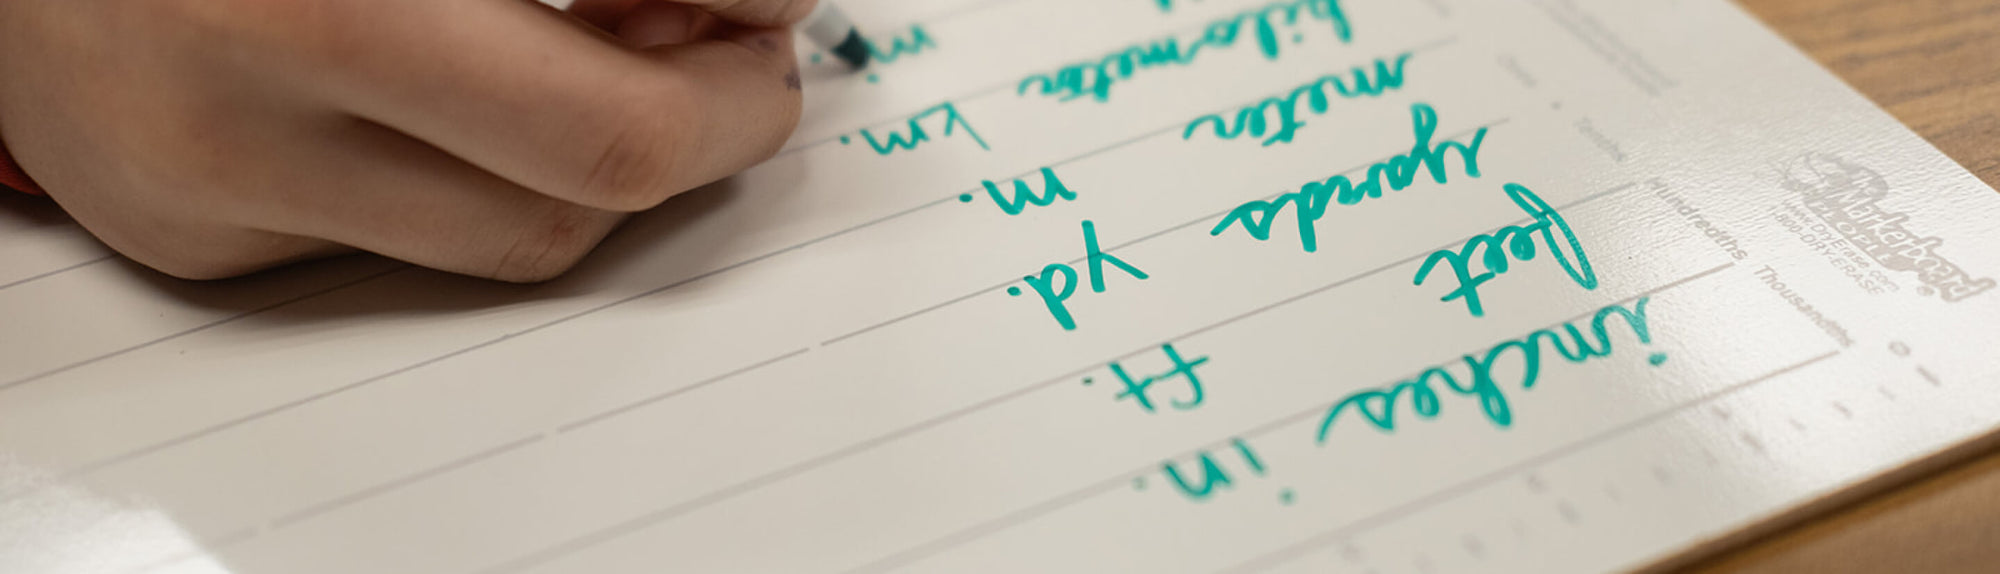 inches in.
feet ft.
yards yd.
meter m.
kilometer km.
mi.
Tenths
Hundredths
Thousandths
Markerboard
PEOPLE
www.DryErase.com
1-800-DRY-ERASE